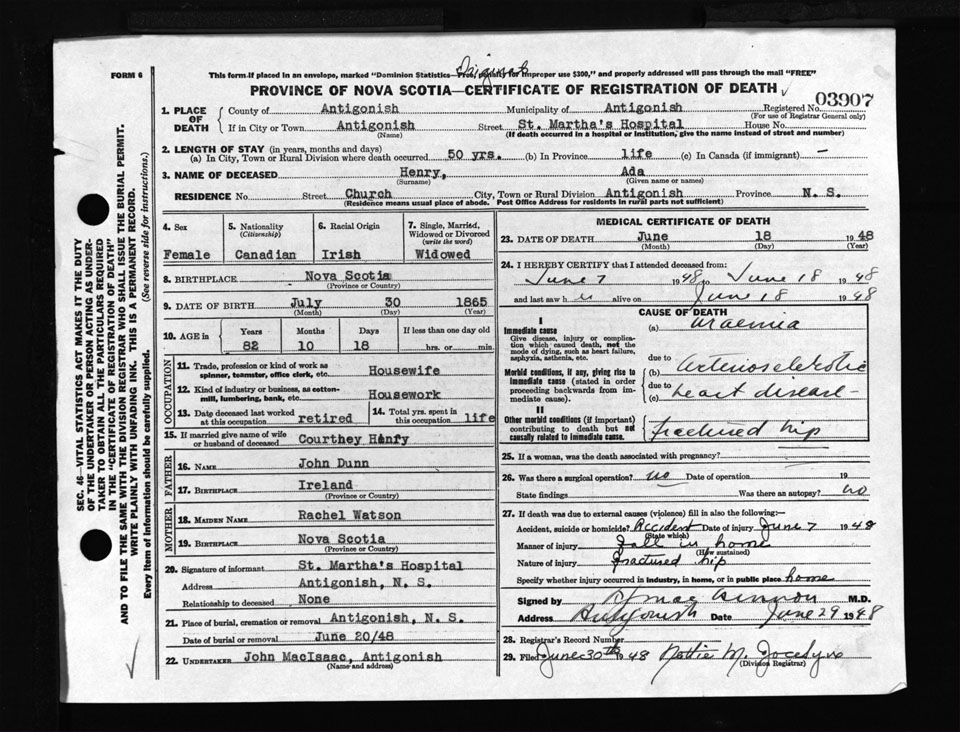 Original
FORM 6
This form if placed in an envelope, marked "Dominion Statistics—Free, penalty for improper use $300," and properly addressed will pass through the mail "FREE"
PROVINCE OF NOVA SCOTIA—CERTIFICATE OF REGISTRATION OF DEATH
03907
1. PLACE OF DEATH
County of Antigonish Municipality of Antigonish Registered No.
(For use of Registrar General only)
If in City or Town Antigonish Street St. Martha's Hospital House No.
(Name) (If death occurred in a hospital or institution, give the name instead of street and number)
2. LENGTH OF STAY (in years, months and days)
(a) In City, Town or Rural Division where death occurred 50 yrs. (b) In Province life (c) In Canada (if immigrant) —
3. NAME OF DECEASED Henry, Ada
(Surname) (Given name or names)
RESIDENCE No. Street Church City, Town or Rural Division Antigonish Province N. S.
(Residence means usual place of abode. Post Office Address for residents in rural parts not sufficient)
4. Sex Female
5. Nationality (Citizenship) Canadian
6. Racial Origin Irish
7. Single, Married, Widowed or Divorced (write the word) Widowed
8. BIRTHPLACE Nova Scotia
(Province or Country)
9. DATE OF BIRTH July 30 1865
(Month) (Day) (Year)
10. AGE in Years Months Days If less than one day old
82 10 18 hrs. or min.
OCCUPATION
11. Trade, profession or kind of work as spinner, teamster, office clerk, etc. Housewife
12. Kind of industry or business, as cotton-mill, lumbering, bank, etc. Housework
13. Date deceased last worked at this occupation retired
14. Total yrs. spent in this occupation life
15. If married give name of wife or husband of deceased Courthey Henry
FATHER
16. NAME John Dunn
17. BIRTHPLACE Ireland
(Province or Country)
MOTHER
18. MAIDEN NAME Rachel Watson
19. BIRTHPLACE Nova Scotia
(Province or Country)
20. Signature of informant St. Martha's Hospital
Address Antigonish, N. S.
Relationship to deceased None
21. Place of burial, cremation or removal Antigonish, N. S.
Date of burial or removal June 20/48
22. UNDERTAKER John MacIsaac, Antigonish
(Name and address)
MEDICAL CERTIFICATE OF DEATH
23. DATE OF DEATH June 18 1948
(Month) (Day) (Year)
24. I HEREBY CERTIFY that I attended deceased from:
June 7 1948 to June 18 1948
and last saw her alive on June 18 1948
CAUSE OF DEATH
I
Immediate cause
Give disease, injury or complication which caused death, not the mode of dying, such as heart failure, asphyxia, asthenia, etc.
(a) Uraemia
due to
Morbid conditions, if any, giving rise to immediate cause (stated in order proceeding backwards from immediate cause).
(b) Arteriosclerotic
due to
(c) heart disease
II
Other morbid conditions (if important) contributing to death but not causally related to immediate cause.
fractured hip
25. If a woman, was the death associated with pregnancy?
26. Was there a surgical operation? no Date of operation 19
State findings Was there an autopsy? no
27. If death was due to external causes (violence) fill in also the following:
Accident, suicide or homicide? Accident Date of injury June 7 1948
(State which)
Manner of injury fall in home
(How sustained)
Nature of injury fractured hip
Specify whether injury occurred in industry, in home, or in public place home
Signed by M.D.
Address Antigonish Date June 29 1948
28. Registrar's Record Number
29. Filed June 30th 1948 Nettie M. Jocelyn
(Division Registrar)
SEC. 46—VITAL STATISTICS ACT MAKES IT THE DUTY
OF THE UNDERTAKER OR PERSON ACTING AS UNDER-
TAKER TO OBTAIN ALL THE PARTICULARS REQUIRED
IN THE "CERTIFICATE OF REGISTRATION OF DEATH"
AND TO FILE THE SAME WITH THE DIVISION REGISTRAR WHO SHALL ISSUE THE BURIAL PERMIT.
WRITE PLAINLY WITH UNFADING INK. THIS IS A PERMANENT RECORD.
Every item of information should be carefully supplied. (See reverse side for instructions.)